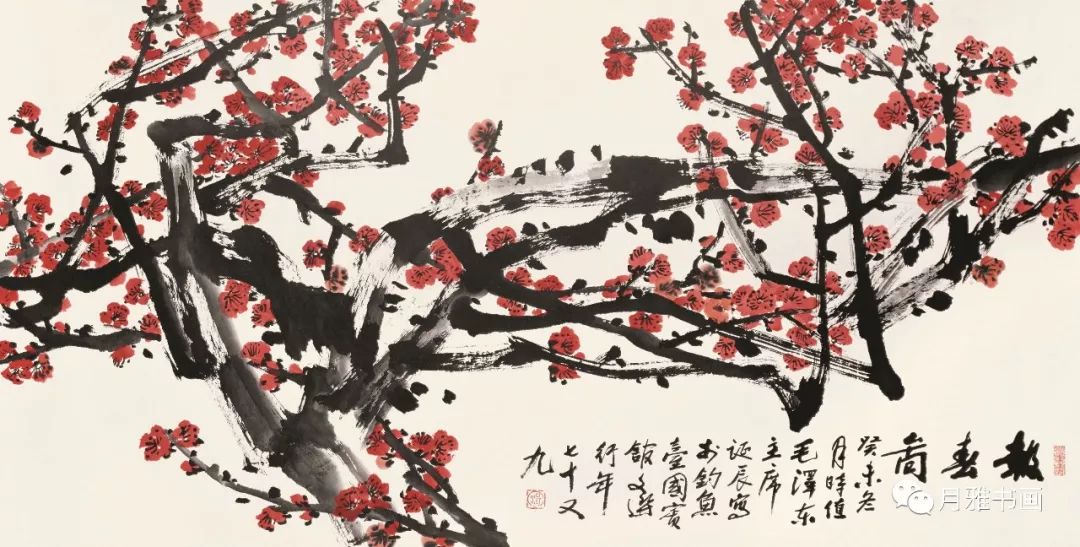 報春啚
癸未冬
月時值
毛澤东
主席
誕辰寫
於釣魚
臺國賓
館文選
行年
七十又
九
月雅书画